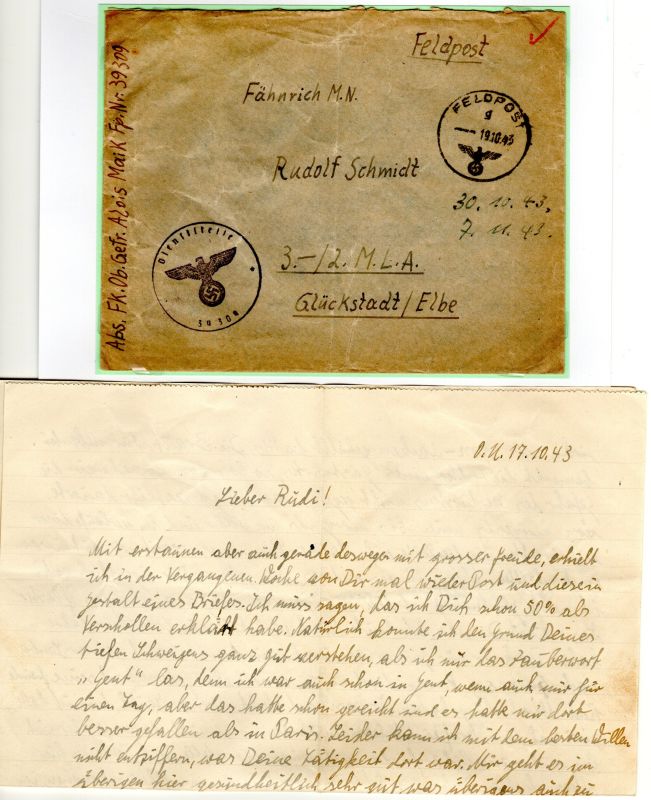 Feldpost
Fähnrich M.N.
FELDPOST
g
19.10.43
Rudolf Schmidt
30. 10. 43.
7. 11. 43.
3.-/2. M.L.A.
Glückstadt/Elbe
Dienststelle
39309
Abs. FK.Ob.Gefr. Alois Maik Fp.Nr. 39309
O.U. 17.10.43
Lieber Rudi!
Mit erstaunen aber auch gerade deswegen mit grosser Freude, erhielt
ich in der Vergangenen Woche von Dir mal wieder Post und diese in
gestalt eines Briefes. Ich muss sagen, das ich Dich schon 50% als
Verschollen erklärt habe. Natürlich konnte ich den Grund Deines
tiefen Schweigens ganz gut verstehen, als ich mir das Zauberwort
„Gent" las, denn ich war auch schon in Gent, wenn auch nur für
einen Tag, aber das hatte schon gereicht und es hatte mir dort
besser gefallen als in Paris. Leider kann ich mit dem besten Willen
nicht entziffern, was Deine Tätigkeit dort war. Mir geht es im
übrigen hier gesundheitlich sehr gut was übrigens auch zu